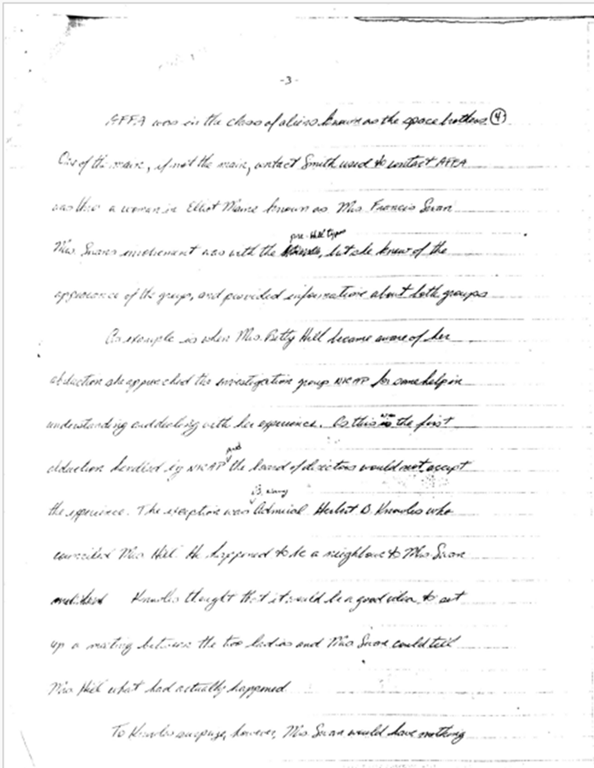 -3-
AFFA was in the class of aliens known as the space brothers. 4
One of the main, if not the main, contact Smith used to contact AFFA
was thru a woman in Eliot Maine known as Mrs Francis Swan
pre-Hill types
Mrs Swans involvement was with the , but she knew of the
appearance of the groups, and provided information about both groups
As example is when Mrs. Betty Hill became aware of her
abduction she approached the investigation group NICAP for some help in
understanding and dealing with her experience. As this was the first
abduction handled by NICAP the board of directors would not accept
the experience. The exception was Admiral Herbert B. Knowles who
Mrs Hill. He happened to be a neighbor to Mrs Swan
Knowles thought that it would be a good idea to set
up a meeting between the two ladies and Mrs Swan could tell
Mrs Hill what had actually happened
To Knowles surprise, however, Mrs Swan would have nothing